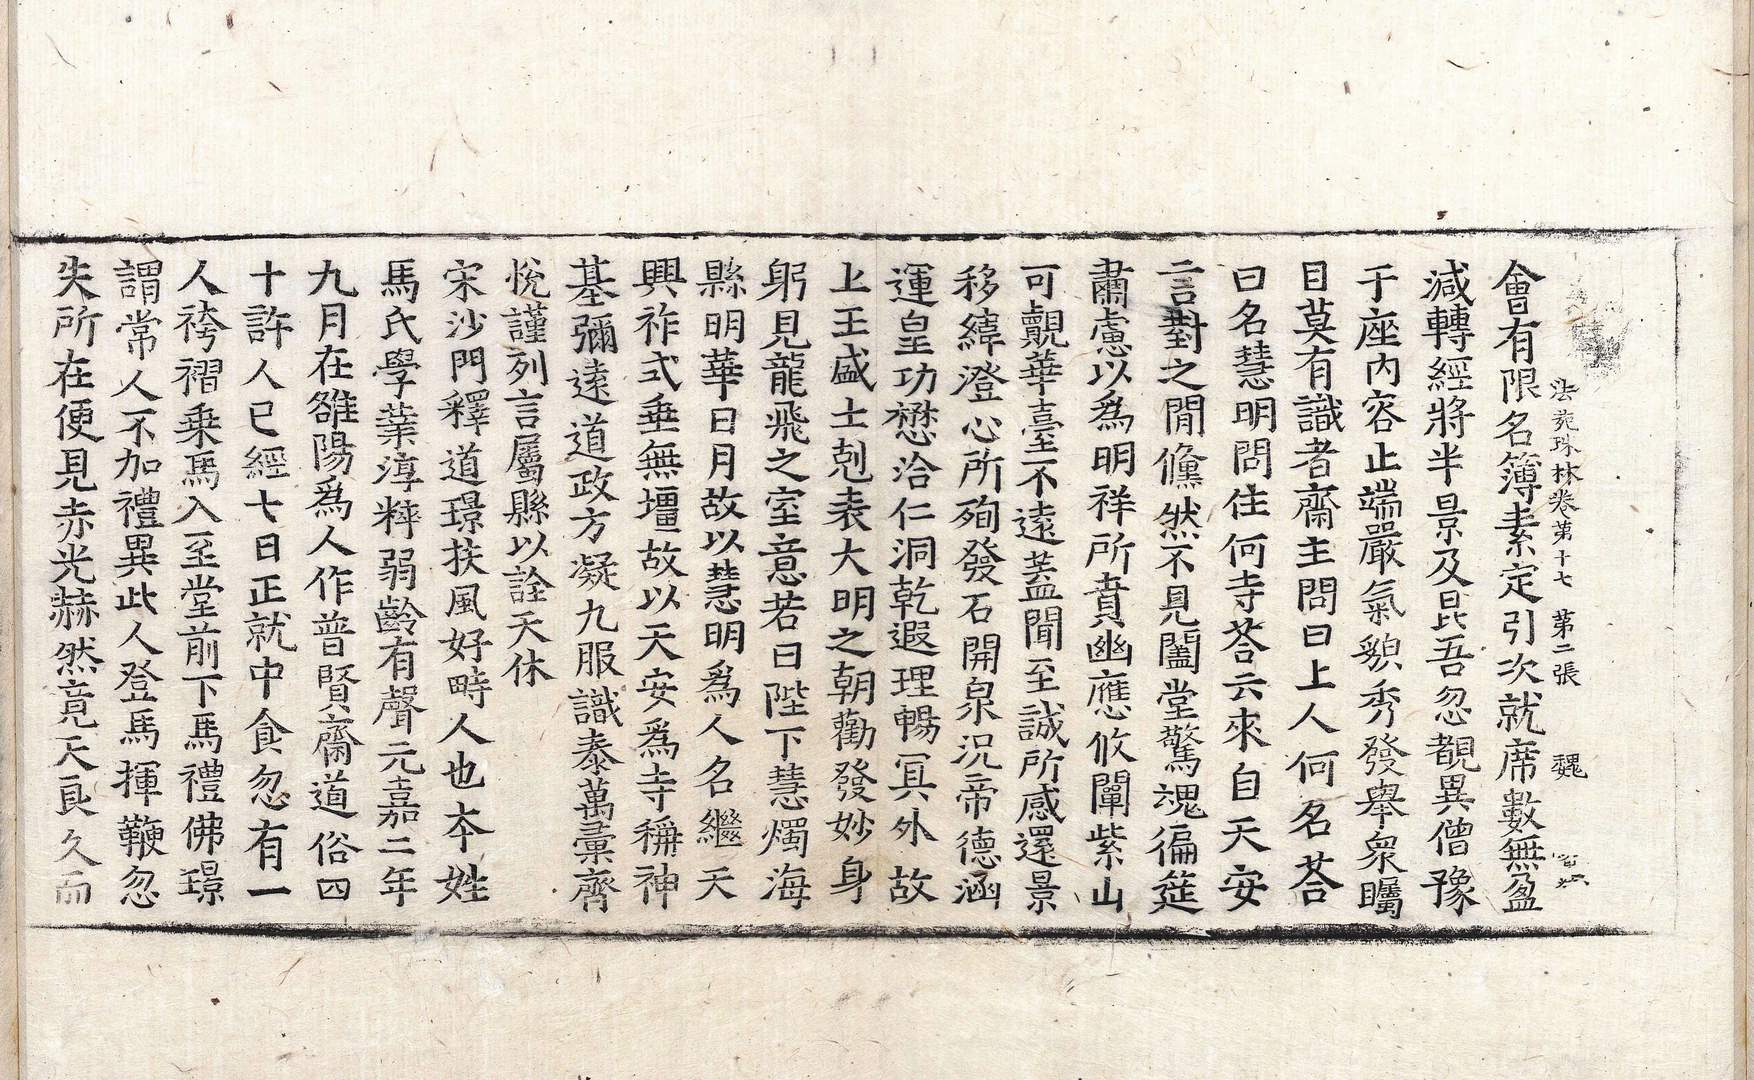 法苑珠林卷第十七 第二張 魏
會有限名簿素定引次就席數無盈
減轉經將半景及昆吾忽覩異僧豫
于座內容止端嚴氣貌秀發舉衆矚
目莫有識者齋主問曰上人何名荅
曰名慧明問住何寺荅云來自天安
言對之間儵然不見闔堂驚魂徧筵
肅慮以爲明祥所賁幽應攸闡紫山
可覿華臺不遠蓋聞至誠所感還景
移緯澄心所殉發石開泉況帝德涵
運皇功懋洽仁洞乾遐理暢冥外故
上王盛士剋表大明之朝勸發妙身
躬見龍飛之室意若曰陛下慧燭海
縣明華日月故以慧明爲人名繼天
興祚式垂無壃故以天安爲寺稱神
基彌遠道政方凝九服識泰萬彙齊
悅謹列言屬縣以詮天休
宋沙門釋道璟扶風好畤人也本姓
馬氏學業淳粹弱齡有聲元嘉二年
九月在雒陽爲人作普賢齋道俗四
十許人已經七日正就中食忽有一
人袴褶乗馬入至堂前下馬禮佛璟
謂常人不加禮異此人登馬揮鞭忽
失所在便見赤光赫然竟天良久而